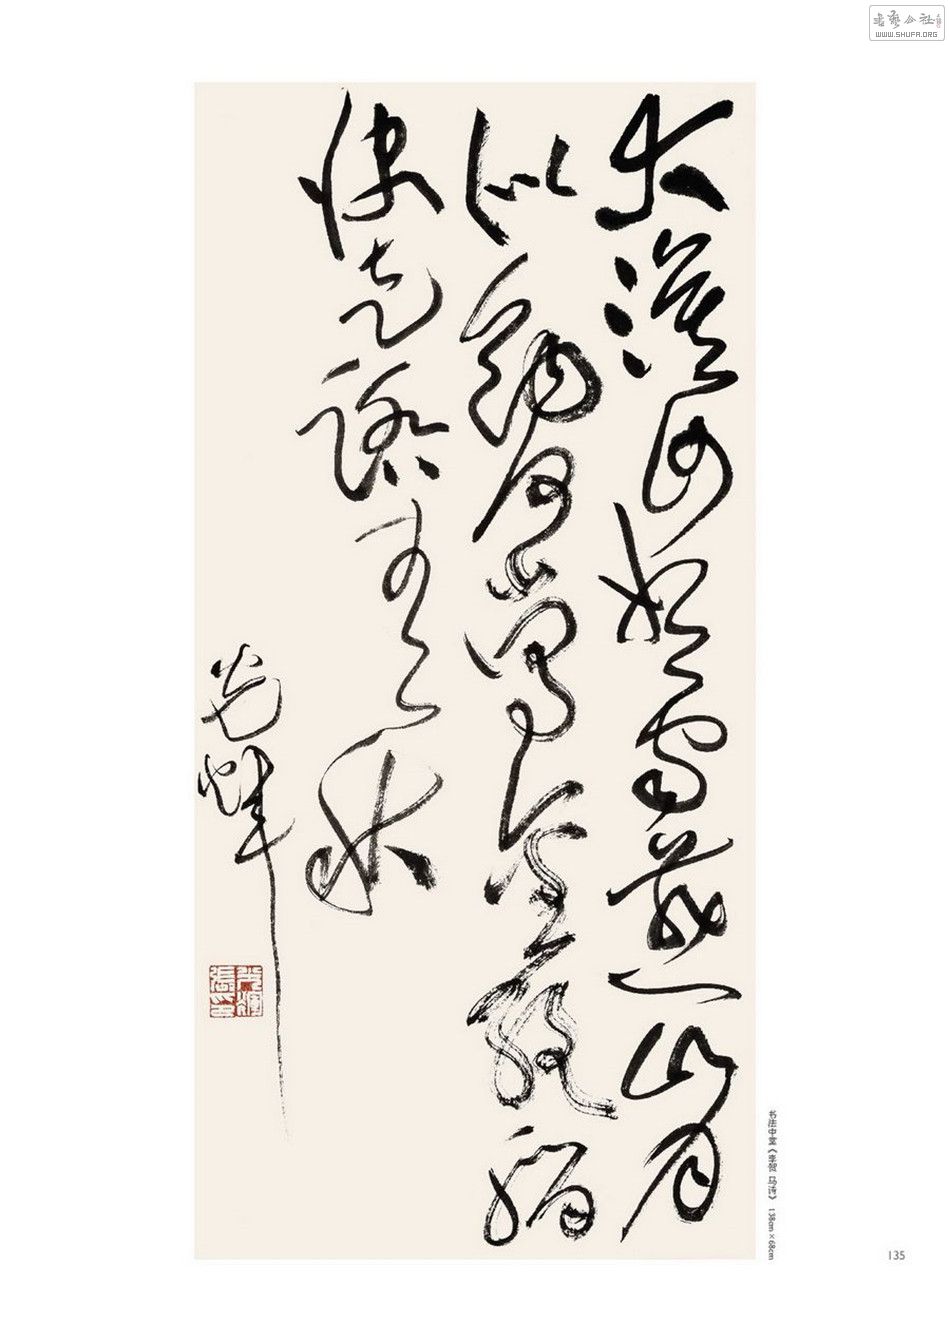 大漠沙如雪燕山月
似钩何当金络脑
快走踏清秋
光辉
张光辉印
书法中堂《李贺 马诗》 138cm×68cm
135
书艺公社
WWW.SHUFA.ORG